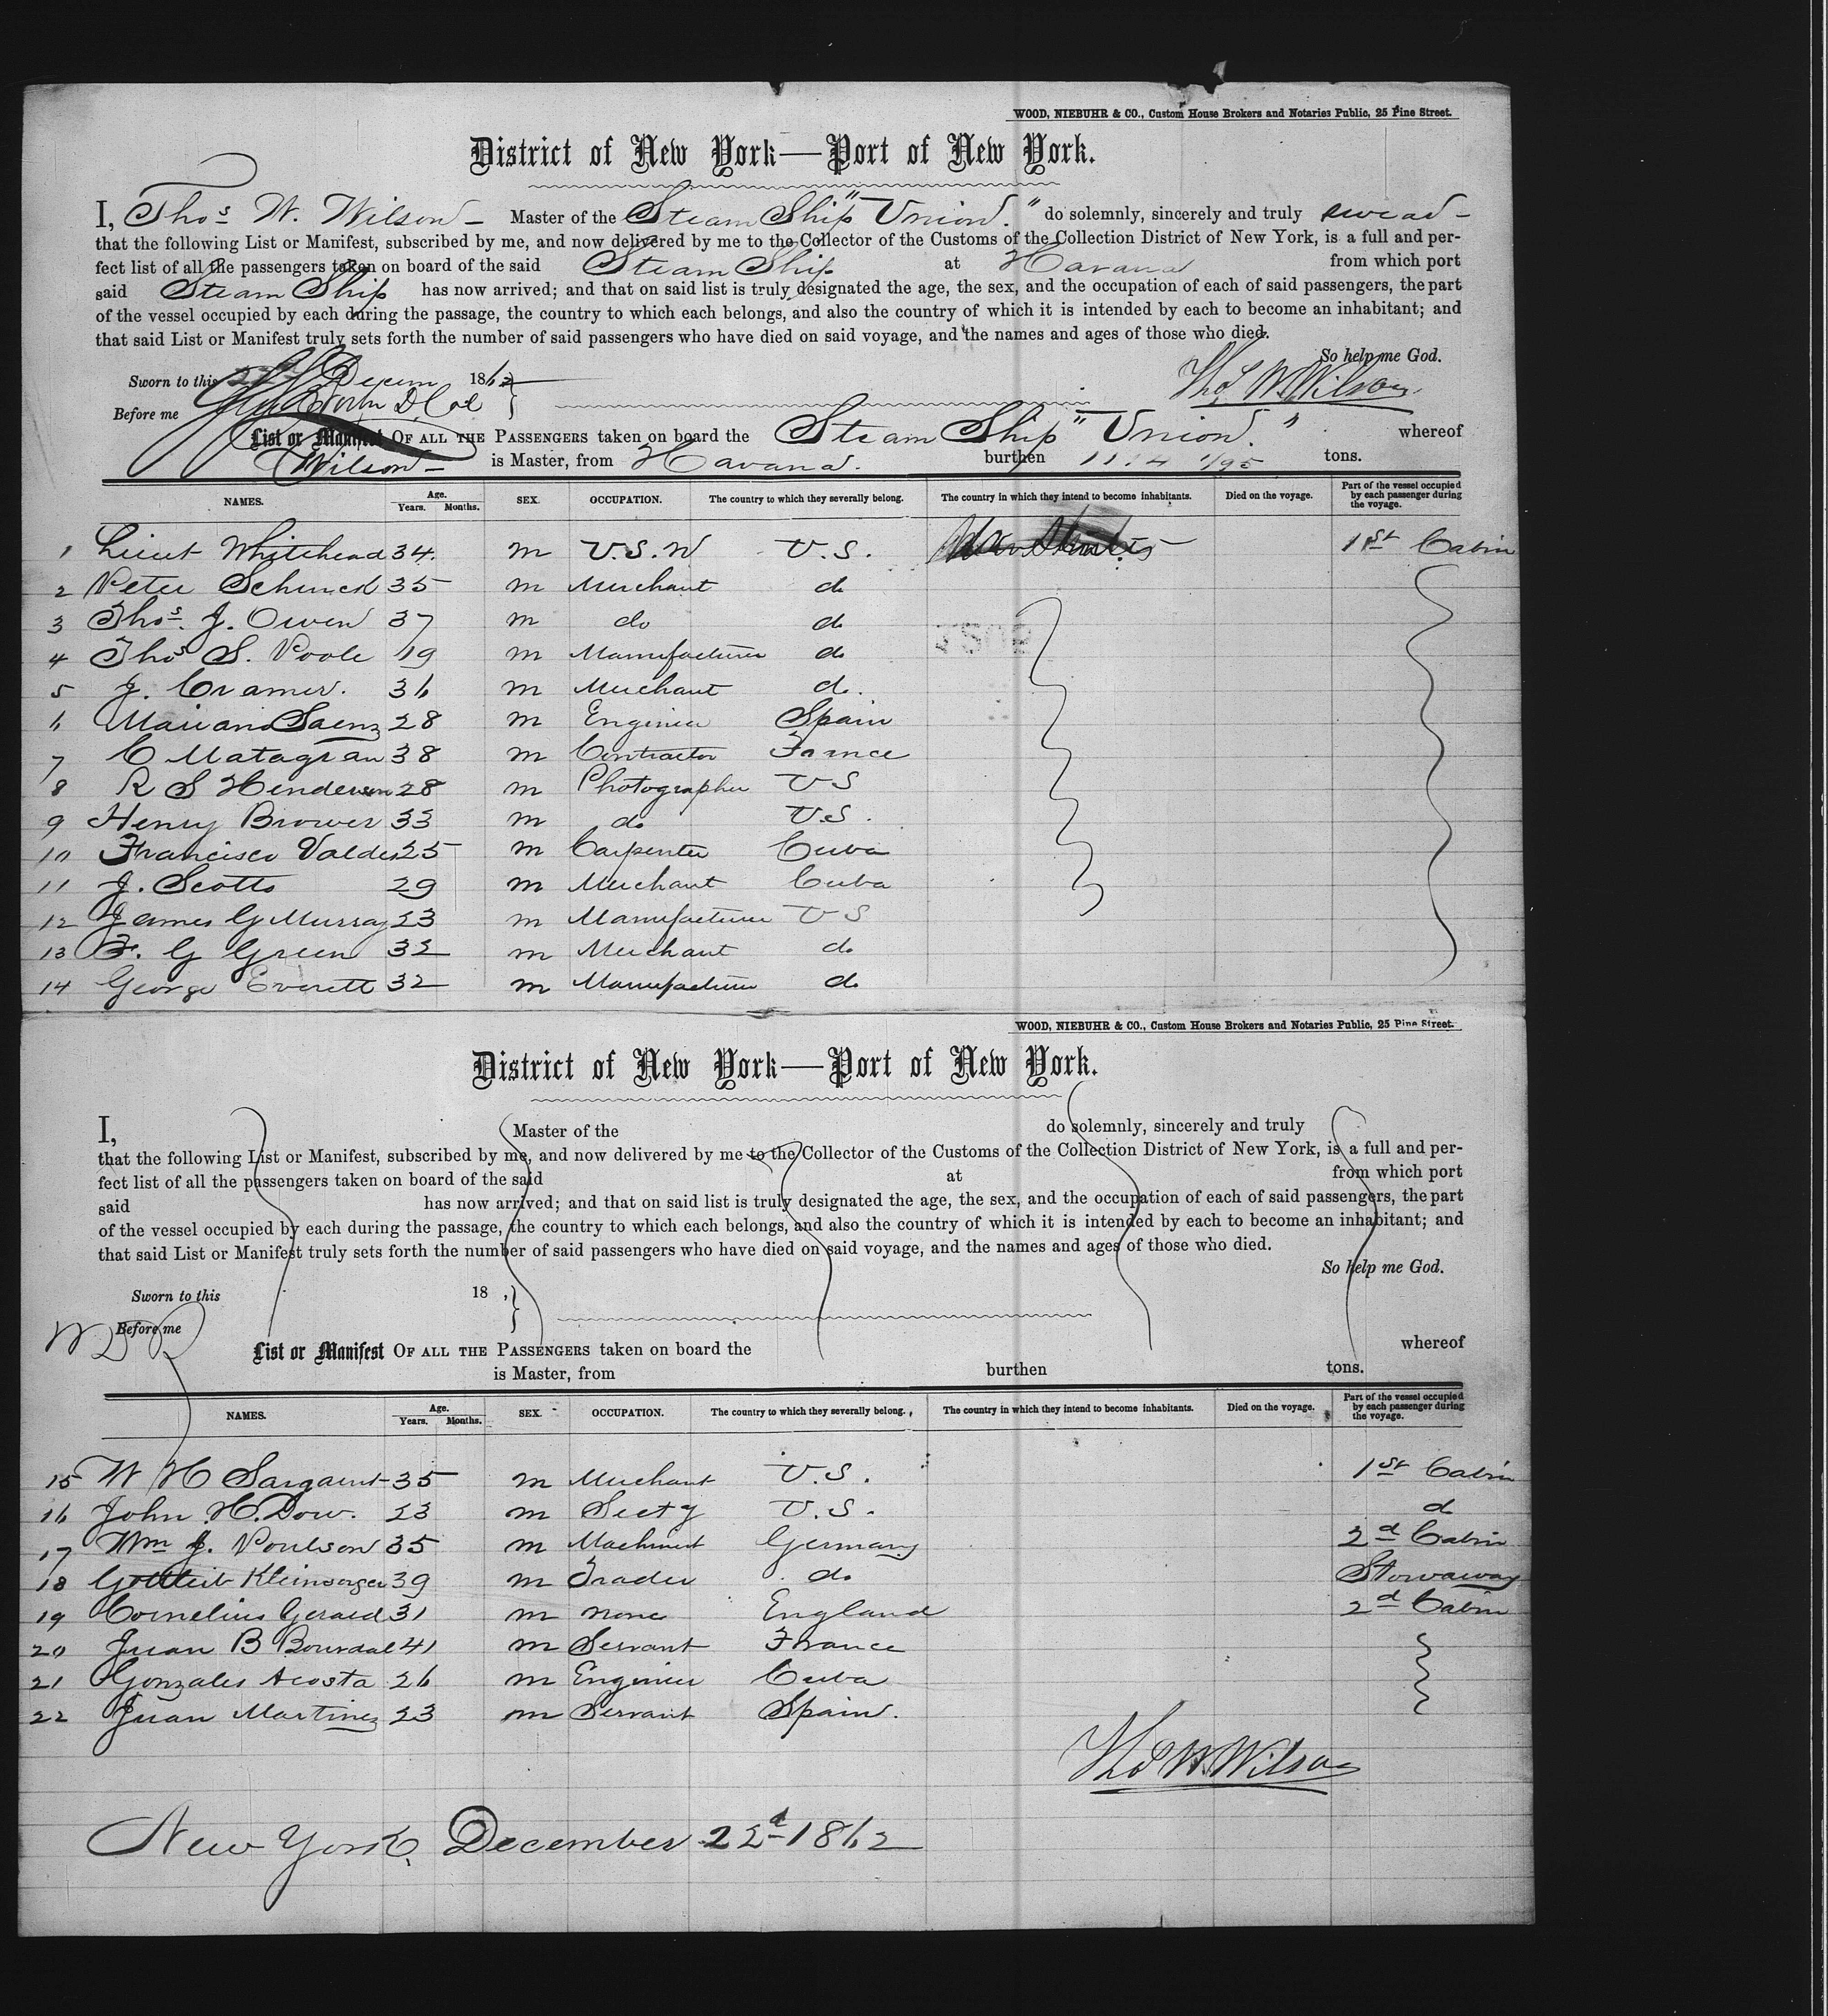 WOOD, NIEBUHR & CO., Custom House Brokers and Notaries Public, 25 Pine Street.
District of New York—Port of New York.
I, Thos W. Wilson – Master of the Steam Ship "Union." do solemnly, sincerely and truly swear –
that the following List or Manifest, subscribed by me, and now delivered by me to the Collector of the Customs of the Collection District of New York, is a full and per-
fect list of all the passengers taken on board of the said Steam Ship at Havana from which port
said Steam Ship has now arrived; and that on said list is truly designated the age, the sex, and the occupation of each of said passengers, the part
of the vessel occupied by each during the passage, the country to which each belongs, and also the country of which it is intended by each to become an inhabitant; and
that said List or Manifest truly sets forth the number of said passengers who have died on said voyage, and the names and ages of those who died.
So help me God.
Sworn to this 22d Decem 1862
Thos W. Wilson
Before me D Col
List or Manifest OF ALL THE PASSENGERS taken on board the Steam Ship "Union." whereof
Wilson – is Master, from Havana. burthen 1114 1/95 tons.
NAMES. Age. Years. Months. SEX. OCCUPATION. The country to which they severally belong. The country in which they intend to become inhabitants. Died on the voyage. Part of the vessel occupied by each passenger during the voyage.
1 Lieut Whitehead 34. m U.S.N U.S. 1st Cabin
2 Peter Schenck 35 m Merchant do
3 Thos. J. Owen 37 m do do
4 Thos S. Poole 19 m Manufacturer do
5 J. Cramer. 36 m Merchant do.
6 Mariano Saenz 28 m Engineer Spain
7 C Matagran 38 m Contractor France
8 R S Henderson 28 m Photographer US
9 Henry Brower 33 m do U.S.
10 Francisco Valdes 25 m Carpenter Cuba
11 J. Scotts 29 m Merchant Cuba
12 James G Murray 23 m Manufacturer US
13 F. G Green 32 m Merchant do
14 George Everett 32 m Manufacturer do
WOOD, NIEBUHR & CO., Custom House Brokers and Notaries Public, 25 Pine Street.
District of New York—Port of New York.
I, Master of the do solemnly, sincerely and truly
that the following List or Manifest, subscribed by me, and now delivered by me to the Collector of the Customs of the Collection District of New York, is a full and per-
fect list of all the passengers taken on board of the said at from which port
said has now arrived; and that on said list is truly designated the age, the sex, and the occupation of each of said passengers, the part
of the vessel occupied by each during the passage, the country to which each belongs, and also the country of which it is intended by each to become an inhabitant; and
that said List or Manifest truly sets forth the number of said passengers who have died on said voyage, and the names and ages of those who died.
So help me God.
Sworn to this 18 ,
Before me
List or Manifest OF ALL THE PASSENGERS taken on board the whereof
is Master, from burthen tons.
NAMES. Age. Years. Months. SEX. OCCUPATION. The country to which they severally belong. The country in which they intend to become inhabitants. Died on the voyage. Part of the vessel occupied by each passenger during the voyage.
15 W H Sargaunt 35 m Merchant U.S. 1st Cabin
16 John H. Dow. 23 m Secty U.S. d
17 Wm J. Poulson 35 m Machinist Germany 2d Cabin
18 Gottleib Kleinsorger 39 m Trader do Stowaway
19 Cornelius Gerard 31 m none England 2d Cabin
20 Juan B Bourdal 41 m Servant France
21 Gonzales Acosta 26 m Engineer Cuba
22 Juan Martinez 23 m Servant Spain.
Thos W. Wilson
New York, December 22d 1862